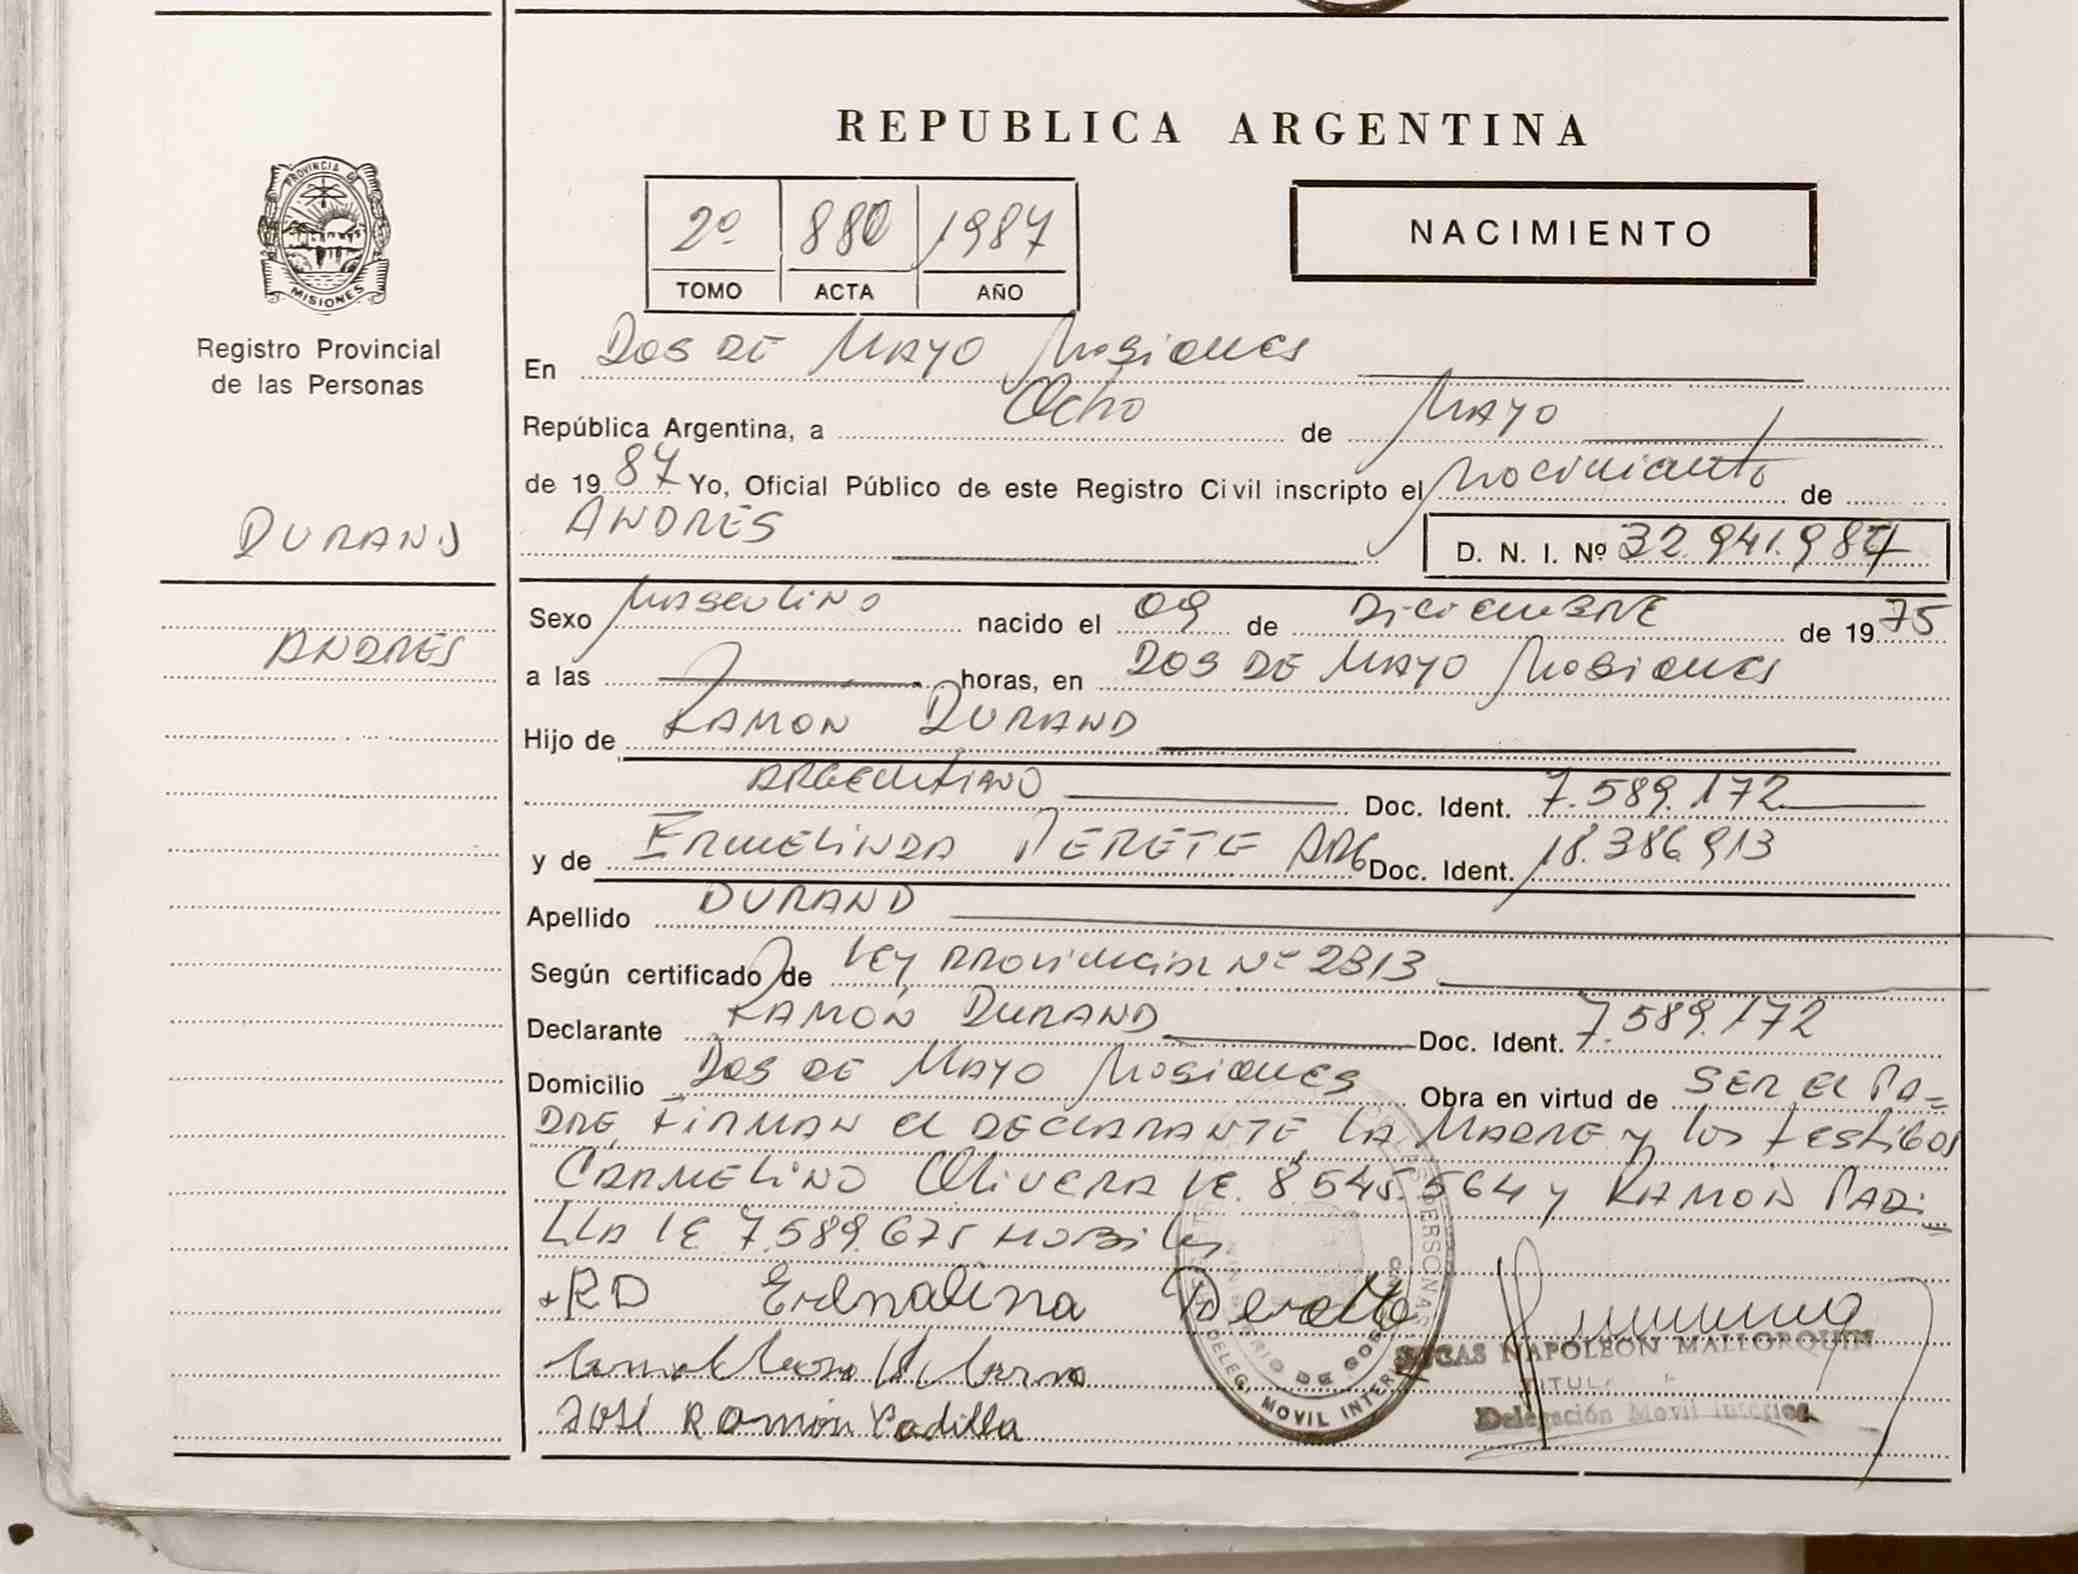 REPUBLICA ARGENTINA
PROVINCIA DE
MISIONES
Registro Provincial
de las Personas
2º 880 1987
TOMO ACTA AÑO
NACIMIENTO
DURAND
ANDRES
En DOS DE MAYO Misiones
República Argentina, a Ocho de MAYO
de 1987 Yo, Oficial Público de este Registro Civil inscripto el Nacimiento de
ANDRES D. N. I. Nº 32.941.987
Sexo MASCULINO nacido el 09 de DICIEMBRE de 1975
a las horas, en DOS DE MAYO Misiones
Hijo de RAMON DURAND
ARGENTINO Doc. Ident. 7.589.172
y de ERMELINDA PERETE ARG Doc. Ident. 18.386.913
Apellido DURAND
Según certificado de LEY PROVINCIAL Nº 2313
Declarante RAMON DURAND Doc. Ident. 7.589.172
Domicilio DOS DE MAYO Misiones Obra en virtud de SER EL PA=
DRE, FIRMAN EL DECLARANTE, LA MADRE y los testigos
CARMELINO OLIVERA LE. 8.545.564 y RAMON PADI=
LLA LE 7.589.675 HOBILES
RD
José Ramón Padilla
LUCAS NAPOLEON MALLORQUIN
TITULAR
Delegación Movil Interior
DELEG. MOVIL INTER